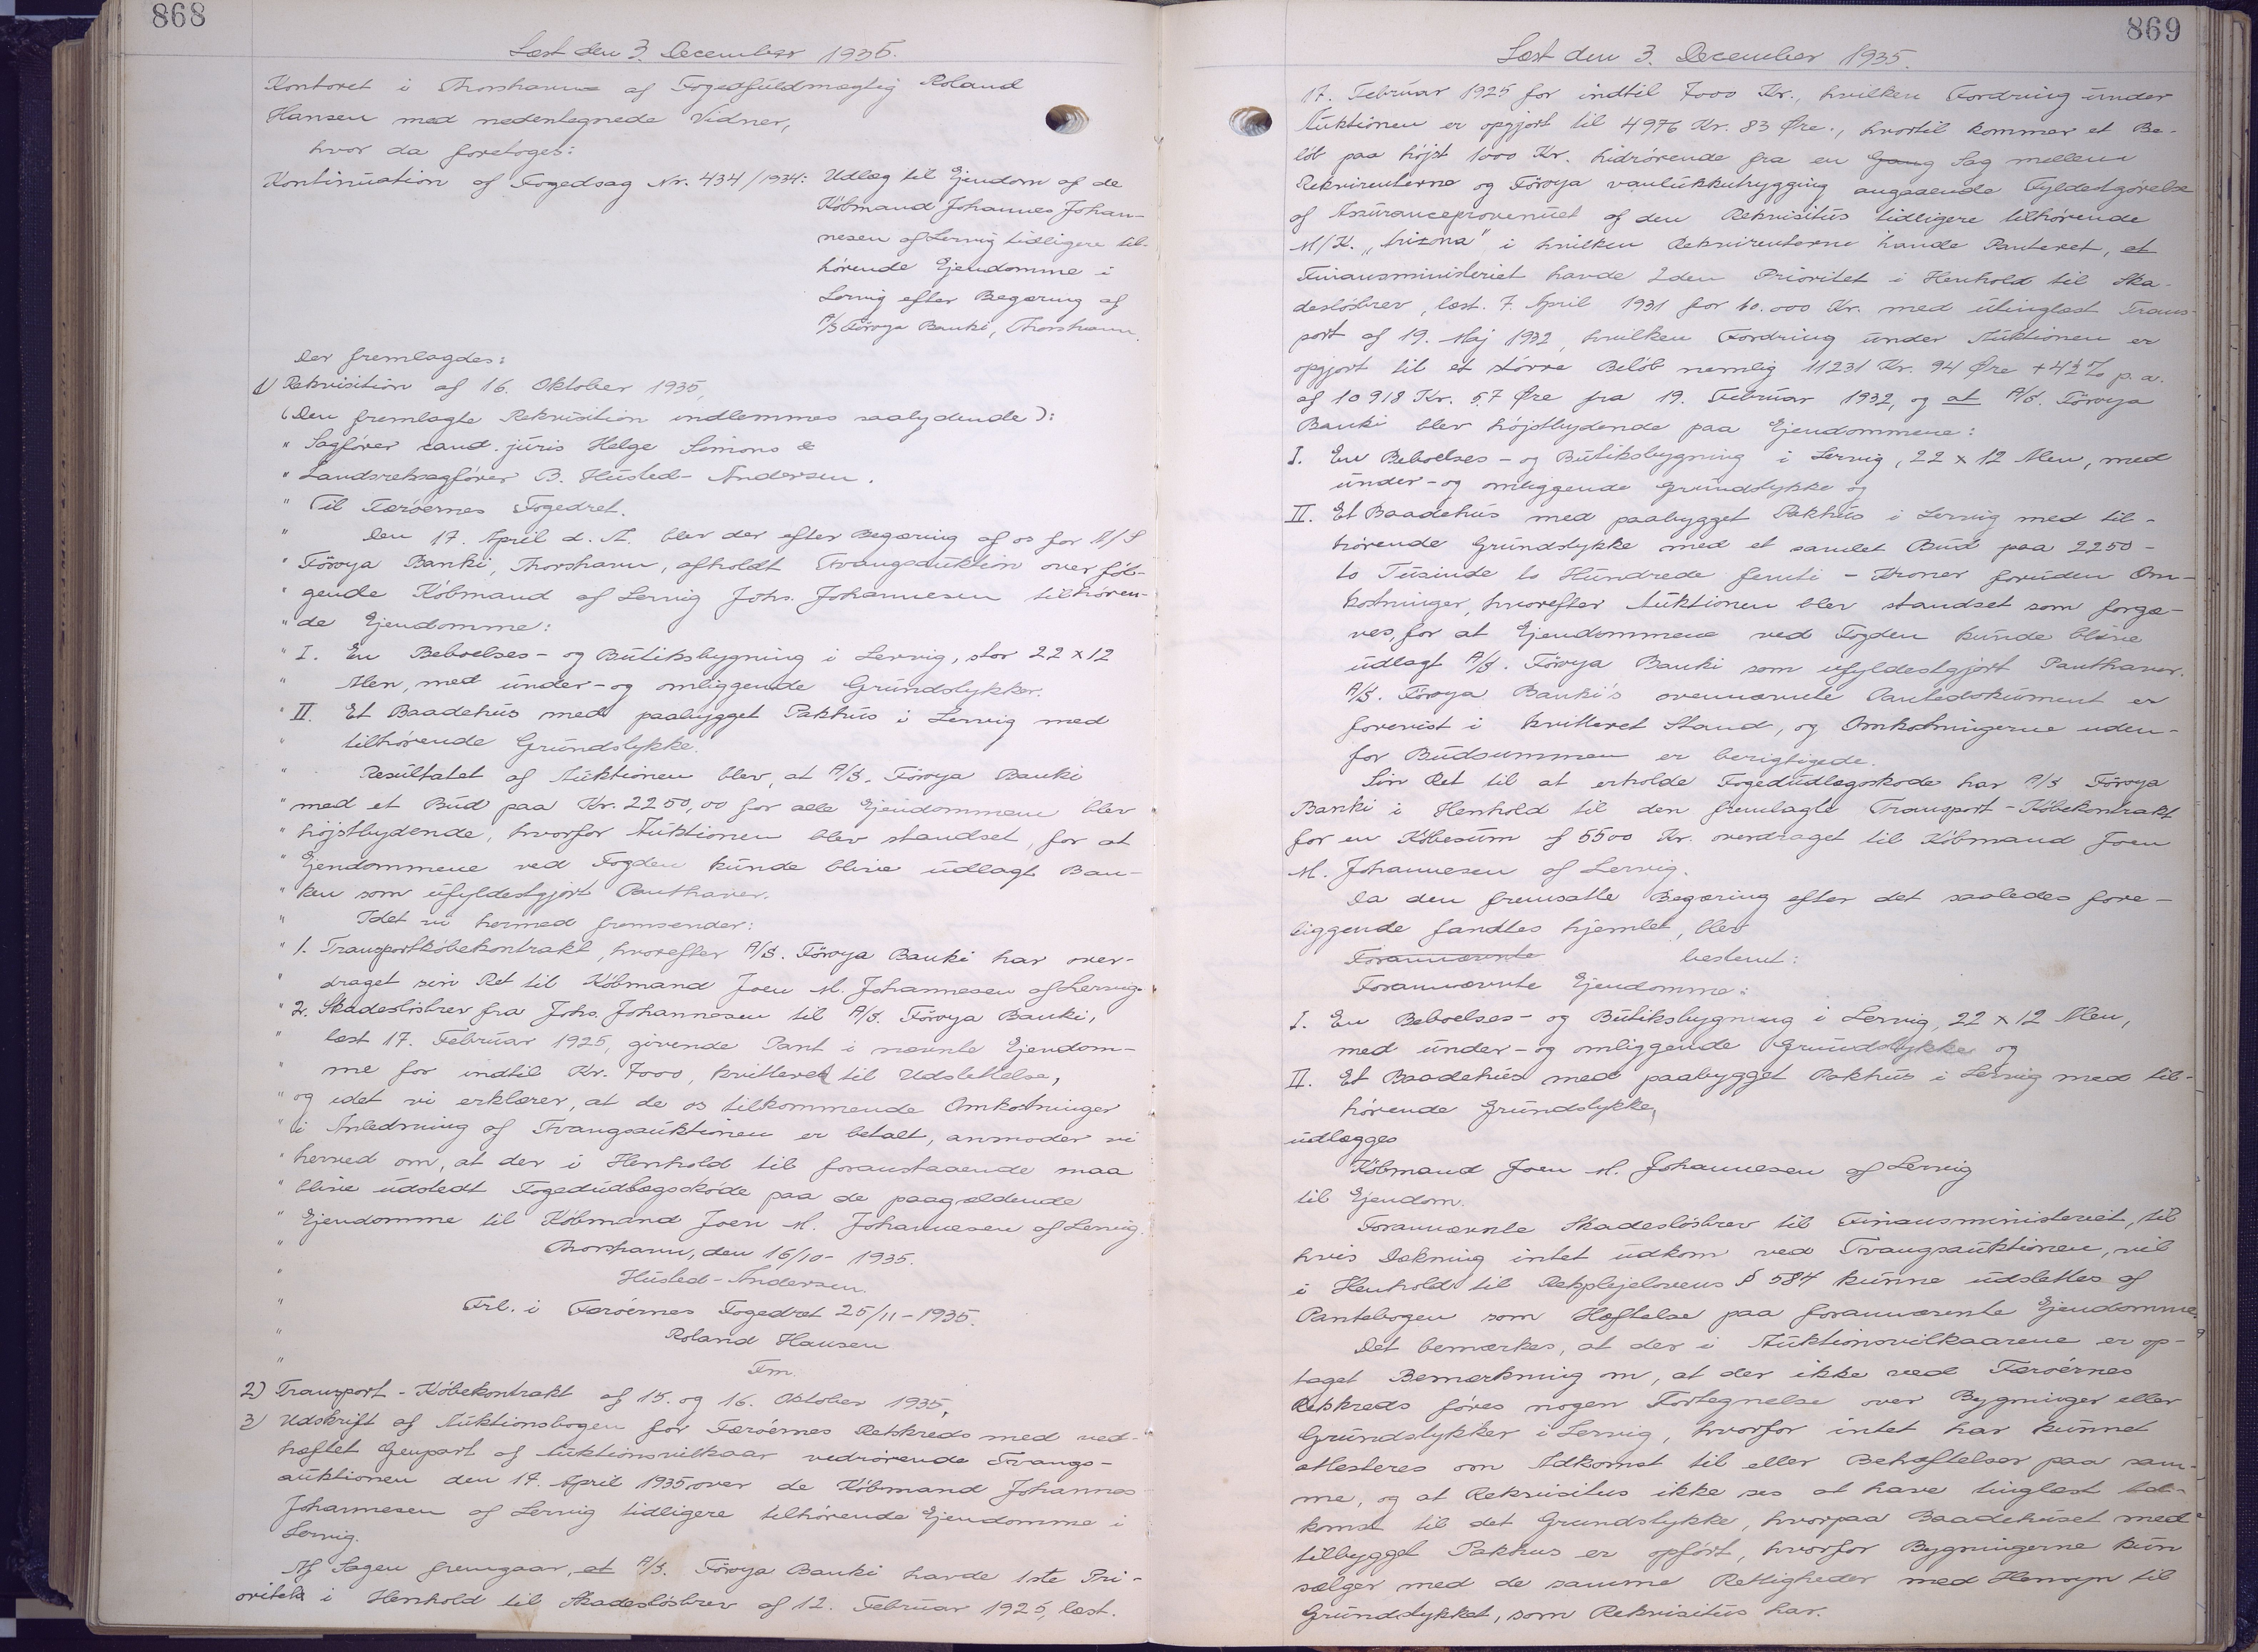 868
Læst den 3. December 1935.
Kontoret i Thorshavn af Fogedfuldmægtig Roland
Hansen med nedentegnede Vidner,
hvor da foretoges:
Kontinuation af Fogedsag Nr. 434/1934: Udlæg til Ejendom af de
Købmand Johannes Johan-
nesen af Lervig tidligere til-
hørende Ejendomme i
Lervig efter Begæring af
A/S Föroya Banki, Thorshavn.
Der fremlagdes:
1) Rekvisition af 16. Oktober 1935,
(Den fremlagte Rekvisition indlemmes saalydende):
" Sagfører cand. juris Helge Simons &
" Landsretssagfører B. Husted-Andersen.
" Til Færøernes Fogedret.
" Den 17. April d. A. blev der efter Begæring af os for A/S
" Föroya Banki, Thorshavn, afholdt Tvangsauktion over føl-
" gende Købmand af Lervig Johs. Johannesen tilhøren-
" de Ejendomme:
" I. En Beboelses- og Butiksbygning i Lervig, stor 22 x 12
" Alen, med under- og omliggende Grundstykker.
" II. Et Baadehus med paabygget Pakhus i Lervig med
" tilhørende Grundstykke.
" Resultatet af Auktionen blev, at A/S. Föroya Banki
" med et Bud paa Kr. 2250,00 for alle Ejendommene blev
" højstbydende, hvorfor Auktionen blev standset, for at
" Ejendommene ved Fogden kunde blive udlagt Ban-
" ken som ufyldestgjort Panthaver.
" Idet vi hermed fremsender:
" 1. Transportkøbekontrakt, hvorefter A/S. Föroya Banki har over-
" draget sin Ret til Købmand Joen M. Johannesen af Lervig.
" 2. Skadesløsbrev fra Johs. Johannesen til A/S. Föroya Banki,
" læst 17. Februar 1925, givende Pant i nævnte Ejendom-
" me for indtil Kr. 7000, kvitteret til Udslettelse,
" og idet vi erklærer, at de os tilkommende Omkostninger
" i Anledning af Tvangsauktionen er betalt, anmoder vi
" herved om, at der i Henhold til foranstaaende maa
" blive udstedt Fogedudlægsskøde paa de paagældende
" Ejendomme til Købmand Joen M. Johannesen af Lervig.
" Thorshavn, den 16/10- 1935.
" Husted-Andersen.
" Frl. i Færøernes Fogedret 25/11-1935.
" Roland Hansen
" Fm.
2) Transport-Købekontrakt af 15. og 16. Oktober 1935,
3) Udskrift af Auktionsbogen for Færøernes Retskreds med ved-
hæftet Genpart af Auktionsvilkaar vedrørende Tvangs-
auktionen den 17. April 1935 over de Købmand Johannes
Johannesen af Lervig tidligere tilhørende Ejendomme i
Lervig.
Af Sagen fremgaar, at A/S. Föroya Banki havde 1ste Pri-
oritet i Henhold til Skadesløsbrev af 12. Februar 1925, læst.
869
Læst den 3. December 1935.
17. Februar 1925 for indtil 7000 Kr., hvilken Fordring under
Auktionen er opgjort til 4976 Kr. 83 Øre., hvortil kommer et Be-
løb paa højst 1000 Kr. hidrørende fra en Gang Sag mellem
Rekvirenterne og Föroya vanlukkutrygging angaaende Fyldestgørelse
af Assuranceprovenuet af den Rekvisitus tidligere tilhørende
M/K. i hvilken Rekvirenterne havde Panteret, at
Finansministeriet havde 2den Prioritet i Henhold til Ska-
desløsbrev, læst. 7. April 1931 for 10.000 Kr. med utinglæst Trans-
port af 19. Maj 1932, hvilken Fordring under Auktionen er
opgjort til et større Beløb nemlig 11231 Kr. 94 Øre + 4½% p. a.
af 10918 Kr. 57 Øre fra 19. Februar 1932, og at A/S. Föroya
Banki blev højstbydende paa Ejendommene:
I. En Beboelses- og Butiksbygning i Lervig, 22 x 12 Alen, med
under- og omliggende Grundstykke og
II. Et Baadehus med paabygget Pakhus i Lervig med til-
hørende Grundstykke med et samlet Bud paa 2250 -
to Tusinde to Hundrede femti - Kroner foruden Om-
kostninger, hvorefter Auktionen blev standset som forgæ-
ves, for at Ejendommene ved Fogden kunde blive
udlagt A/S. Föroya Banki som ufyldestgjort Panthaver.
A/S. Föroya Banki's ovennævnte Pantedokument er
forevist i kvitteret Stand, og Omkostningerne uden-
for Budsummen er berigtigede.
Sin Ret til at erholde Fogedudlægsskøde har A/S Föroya
Banki i Henhold til den fremlagte Transport-Købekontrakt
for en Købesum af 5500 Kr. overdraget til Købmand Joen
M. Johannesen af Lervig.
Da den fremsatte Begæring efter det saaledes fore-
liggende fandtes hjemlet, blev
Forannævnte bestemt:
Forannævnte Ejendomme:
I. En Beboelses- og Butiksbygning i Lervig, 22 x 12 Alen,
med under- og omliggende Grundstykke og
II. Et Baadehus med paabygget Pakhus i Lervig med til-
hørende Grundstykke,
udlægges
Købmand Joen M. Johannesen af Lervig
til Ejendom.
Forannævnte Skadesløsbrev til Finansministeriet, til
hvis Dækning intet udkom ved Tvangsauktionen, vil
i Henhold til Retsplejelovens § 584 kunne udslettes af
Pantebogen som Hæftelse paa forannævnte Ejendomme.
Det bemærkes, at der i Auktionsvilkaarene er op-
taget Bemærkning om, at der ikke ved Færøernes
Retskreds føres nogen Fortegnelse over Bygninger eller
Grundstykker i Lervig, hvorfor intet har kunnet
attesteres om Adkomst til eller Behæftelser paa sam-
me, og at Rekvisitus ikke ses at have tinglæst Ad-
komst til det Grundstykke, hvorpaa Baadehuset med
tilbygget Pakhus er opført, hvorfor Bygningerne kun
sælges med de samme Rettigheder med Hensyn til
Grundstykket, som Rekvisitus har.